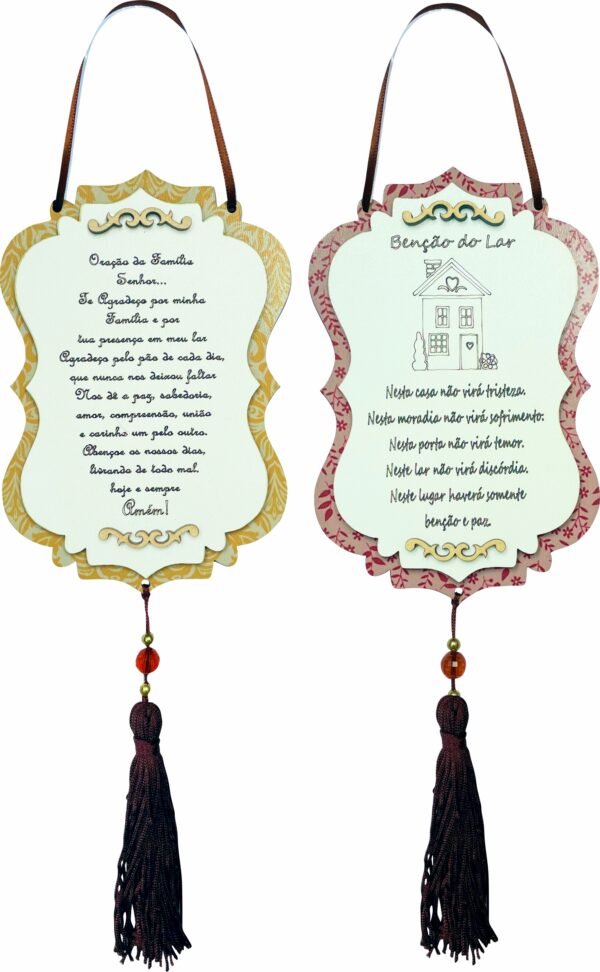 Oração da Família
Senhor...
Te Agradeço por minha
Família e por
tua presença em meu lar
Agradeço pelo pão de cada dia,
que nunca nos deixou faltar
Nos dê a paz, sabedoria,
amor, compreensão, união
e carinho um pelo outro.
Abençoe os nossos dias,
livrando de todo mal.
hoje e sempre
Amém!
Benção do Lar
Nesta casa não virá tristeza.
Nesta moradia não virá sofrimento.
Nesta porta não virá temor.
Neste lar não virá discórdia.
Neste lugar haverá somente
benção e paz.